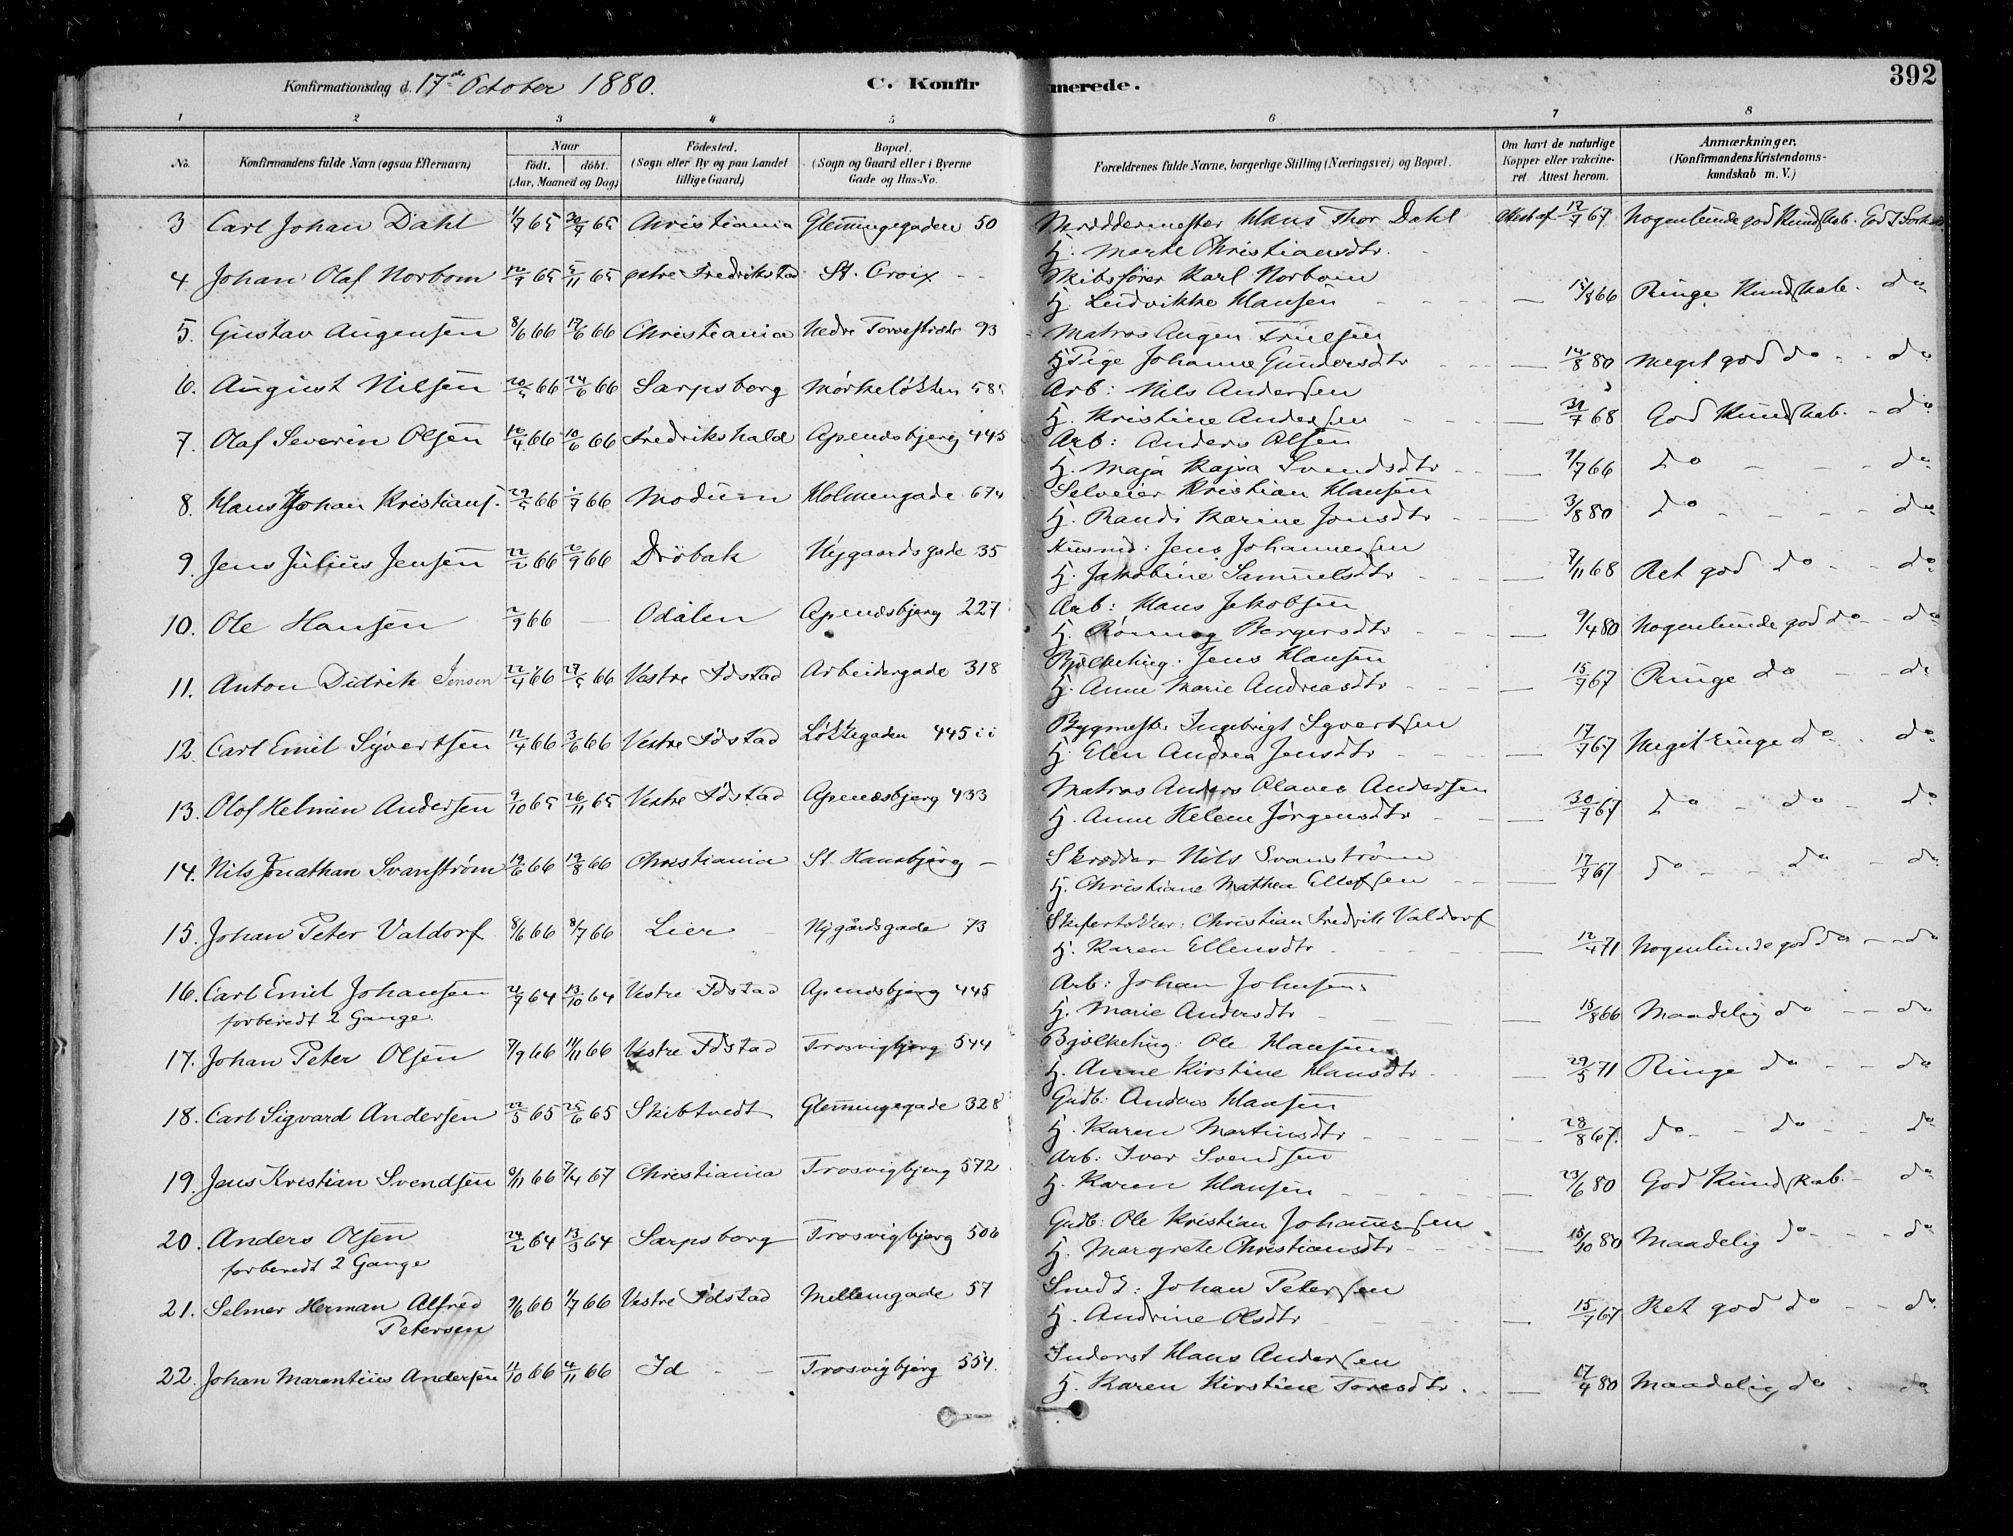 Konfirmationsdag d. 17de October 1880. C. Konfirmerede. 392
1 2 3 4 5 6 7 8
No. Konfirmandens fulde Navn (ogsaa Efternavn) Naar født. døbt. (Aar, Maaned og Dag) Fødested. (Sogn eller By og paa Landet tillige Gaard) Bopæl. (Sogn og Gaard eller i Byerne Gade og Hus-No. Forældrenes fulde Navne, borgerlige Stilling (Næringsvei) og Bopæl. Om havt de naturlige Kopper eller vaccineret Attest herom. Anmærkninger. (Konfirmandens Kristendomskundskab m. V.)
3 Carl Johan Dahl 1/7 65 30/7 65 Christiania Glemmingegaden 50 Hans Thor Dahl Attest af 12/7 67 Nogenlunde god Kundskab. God Forhold
H. Marte Christiansdtr.
4 Johan Olaf Norbom 12/9 65 5/11 65 østre Fredrikstad St. Croix Skibsfører Karl Norbom
H. Ludvikke Hansen 15/8 66 Ringe Kundskab. do
5. Gustav Augensen 8/6 66 17/6 66 Christiania Nedre Torvestræde 93 Matros Augen
H Pige Johanne Gundersdtr 14/8 80 Meget god do do
6. August Nilsen 20/5 66 24/6 66 Sarpsborg Mørkeløkken 585 Arb: Nils Andersen
H. Kristine Andersen 31/7 68 God Kundskab. do
7. Olaf Severin Olsen 12/4 66 10/6 66 Fredrikshald Apenæsbjerg 445 Arb: Anders Olsen
H. Maja Kajsa Svendsdtr 9/7 66 do do
8. Hans Johan Kristians. 29/5 66 1/7 66 Modum Holmengade 674 Selveier Kristian Hansen
H. Randi Karine Jonsdtr 3/8 80 do do
9. Jens Julius Jensen 22/2 66 2/9 66 Drøbak Nygaardsgade 35 Husmd: Jens Johannesen
H. Jakobine Samuelsdtr 7/11 68 Ret god do do
10. Ole Hansen 2/9 66 — Odalen Apenæsbjerg 227 Arb: Hans Jakobsen
H. Rønnog Bergersdtr 9/4 80 Nogenlunde god do do
11. Anton Didrik Jensen 22/4 66 27/5 66 Vestre Fdstad Arbeidergade 318 Bjelkehug. Jens Hansen
H. Anne Marie Andreasdtr 15/7 67 Ringe do do
12. Carl Emil Syvertsen 12/4 66 3/6 66 Vestre Fdstad Løkkegaden 445 ii Bygmester Ingebrigt Syvertsen
H. Elen Andrea Jensdtr 17/7 67 Meget ringe do do
13. Olof Helmin Andersen 9/10 65 26/11 65 Vestre Fdstad Apenæsbjerg 433 Matros Anders Olaves Andersen
H. Anne Helene Jørgensdtr 30/7 67 do do do
14. Nils Jonathan Svanstrøm 19/6 66 19/8 66 Christiania St. Hansbjerg — Skrædder Nils Svanstrøm
H. Christiane Mathea Ellefsen 17/7 67 do do do
15. Johan Peter Valdorf 8/6 66 8/7 66 Lier Nygårdsgade 73 Christian Fredrik Valdorf
H. Karen Ellensdtr 12/4 71 Nogenlunde god do do
16. Carl Emil Johansen 21/7 64 13/10 64 Vestre Fdstad Apenæsbjerg 445 Arb: Johan Johnsen
forberedt 2 Gange. H. Marie Andersdtr 15/8 66 Maadelig do do
17. Johan Peter Olsen 7/9 66 11/11 66 Vestre Fdstad Trosvigbjerg 544 Bjelkehug: Ole Hansen
H. Anne Kirstine Hansdtr 29/5 71 Ringe do do
18. Carl Sigvard Andersen 22/5 65 25/6 65 Skibtvedt Glemmingegade 328 Grdb: Anders Hansen
H. Karen Martinsdtr 28/8 67. do do do
19. Jens Kristian Svendsen 9/11 66 7/4 67 Christiania Trosvigbjerg 572 Arb: Iver Svendsen
H. Karen Hansen 23/6 80 God Kundskab do
20. Anders Olsen 24/2 64 13/3 64 Sarpsborg Trosvigbjerg 506 Grdb: Ole Kristian Johannessen
forberedt 2 Gange H. Margrete Christiansdtr 15/10 80 Maadelig do do
21. Selmer Herman Alfred 9/6 66 1/7 66 Vestre Fdstad Mellemgade 57 Smed: Johan Petersen
Petersen H. Andrine Olsdtr 15/7 67 Ret god do do
22. Johan Marentius Andersen 11/10 66 4/11 66 Id Trosvigbjerg 554. Inderst Hans Andersen
H. Karen Kirstine Toresdtr. 17/4 80 Maadelig do do